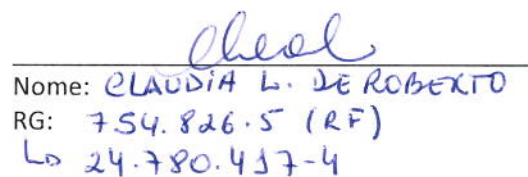 Nome: CLAUDIA L. DE ROBERTO
RG: 754.826.5 (RF)
↳ 24.780.417-4